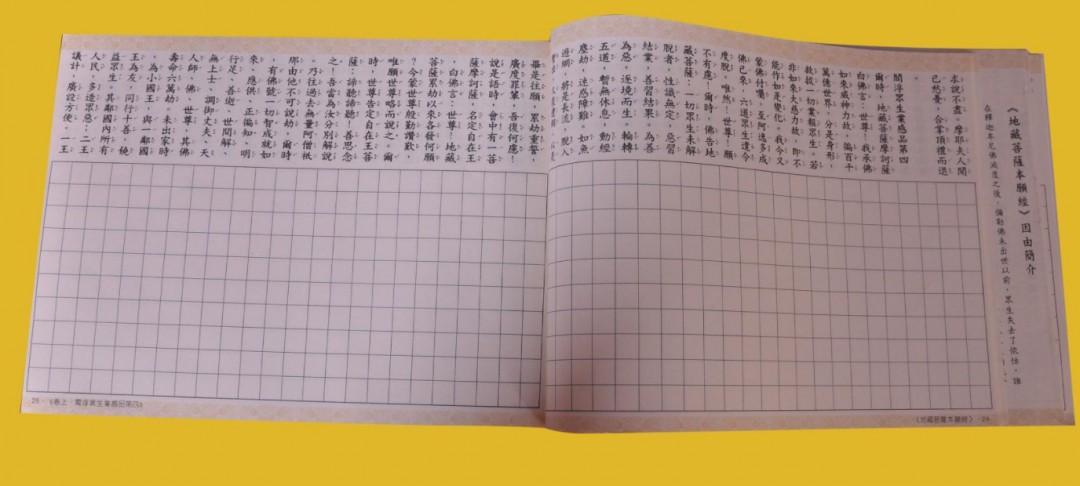 《地藏菩薩本願經》因由簡介
在釋迦牟尼佛滅度之後，彌勒佛未出世以前，眾生失去了依怙，誰
求說不盡。摩耶夫人聞
已愁憂，合掌頂禮而退
。
閻浮眾生業感品第四
爾時，地藏菩薩摩訶薩
白佛言：世尊！我承佛
如來威神力故，徧百千
萬億世界，分是身形，
救拔一切業報眾生。若
非如來大慈力故，即不
能作如是變化。我今又
蒙佛付囑，至阿逸多成
佛已來，六道眾生遣令
度脫。唯然！世尊！願
不有慮。爾時，佛告地
藏菩薩：一切眾生未解
脫者，性識無定，惡習
結業，善習結果。為善
為惡，逐境而生。輪轉
五道，暫無休息，動經
塵劫，迷惑障難。如魚
遊網，將是長流，脫入
畢是往願，累劫重誓，
廣度罪輩，吾復何慮！
說是語時，會中有一菩
薩摩訶薩，名定自在王
，白佛言：世尊！地藏
菩薩累劫以來各發何願
？今蒙世尊殷勤讚歎，
唯願世尊略而說之。爾
時，世尊告定自在王菩
薩：諦聽諦聽！善思念
之！吾當為汝分別解說
。乃往過去無量阿僧祇
那由他不可說劫，爾時
，有佛號一切智成就如
來、應供、正徧知、明
行足、善逝、世間解、
無上士、調御丈夫、天
人師、佛、世尊，其佛
壽命六萬劫。未出家時
，為小國王，與一鄰國
王為友，同行十善，饒
益眾生。其鄰國內所有
人民，多造眾惡。二王
議計，廣設方便。一王
《地藏菩薩本願經》．24
25．《卷上．閻浮眾生業感品第四》